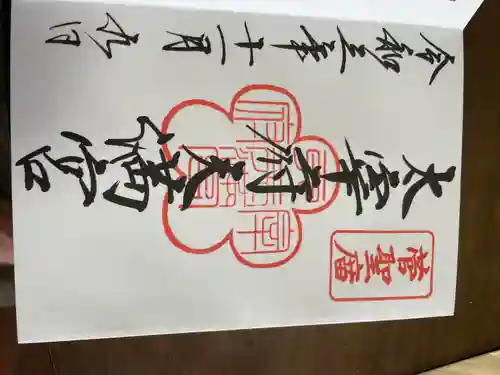 菅聖廟
太宰府天満宮
令和三年十一月九日